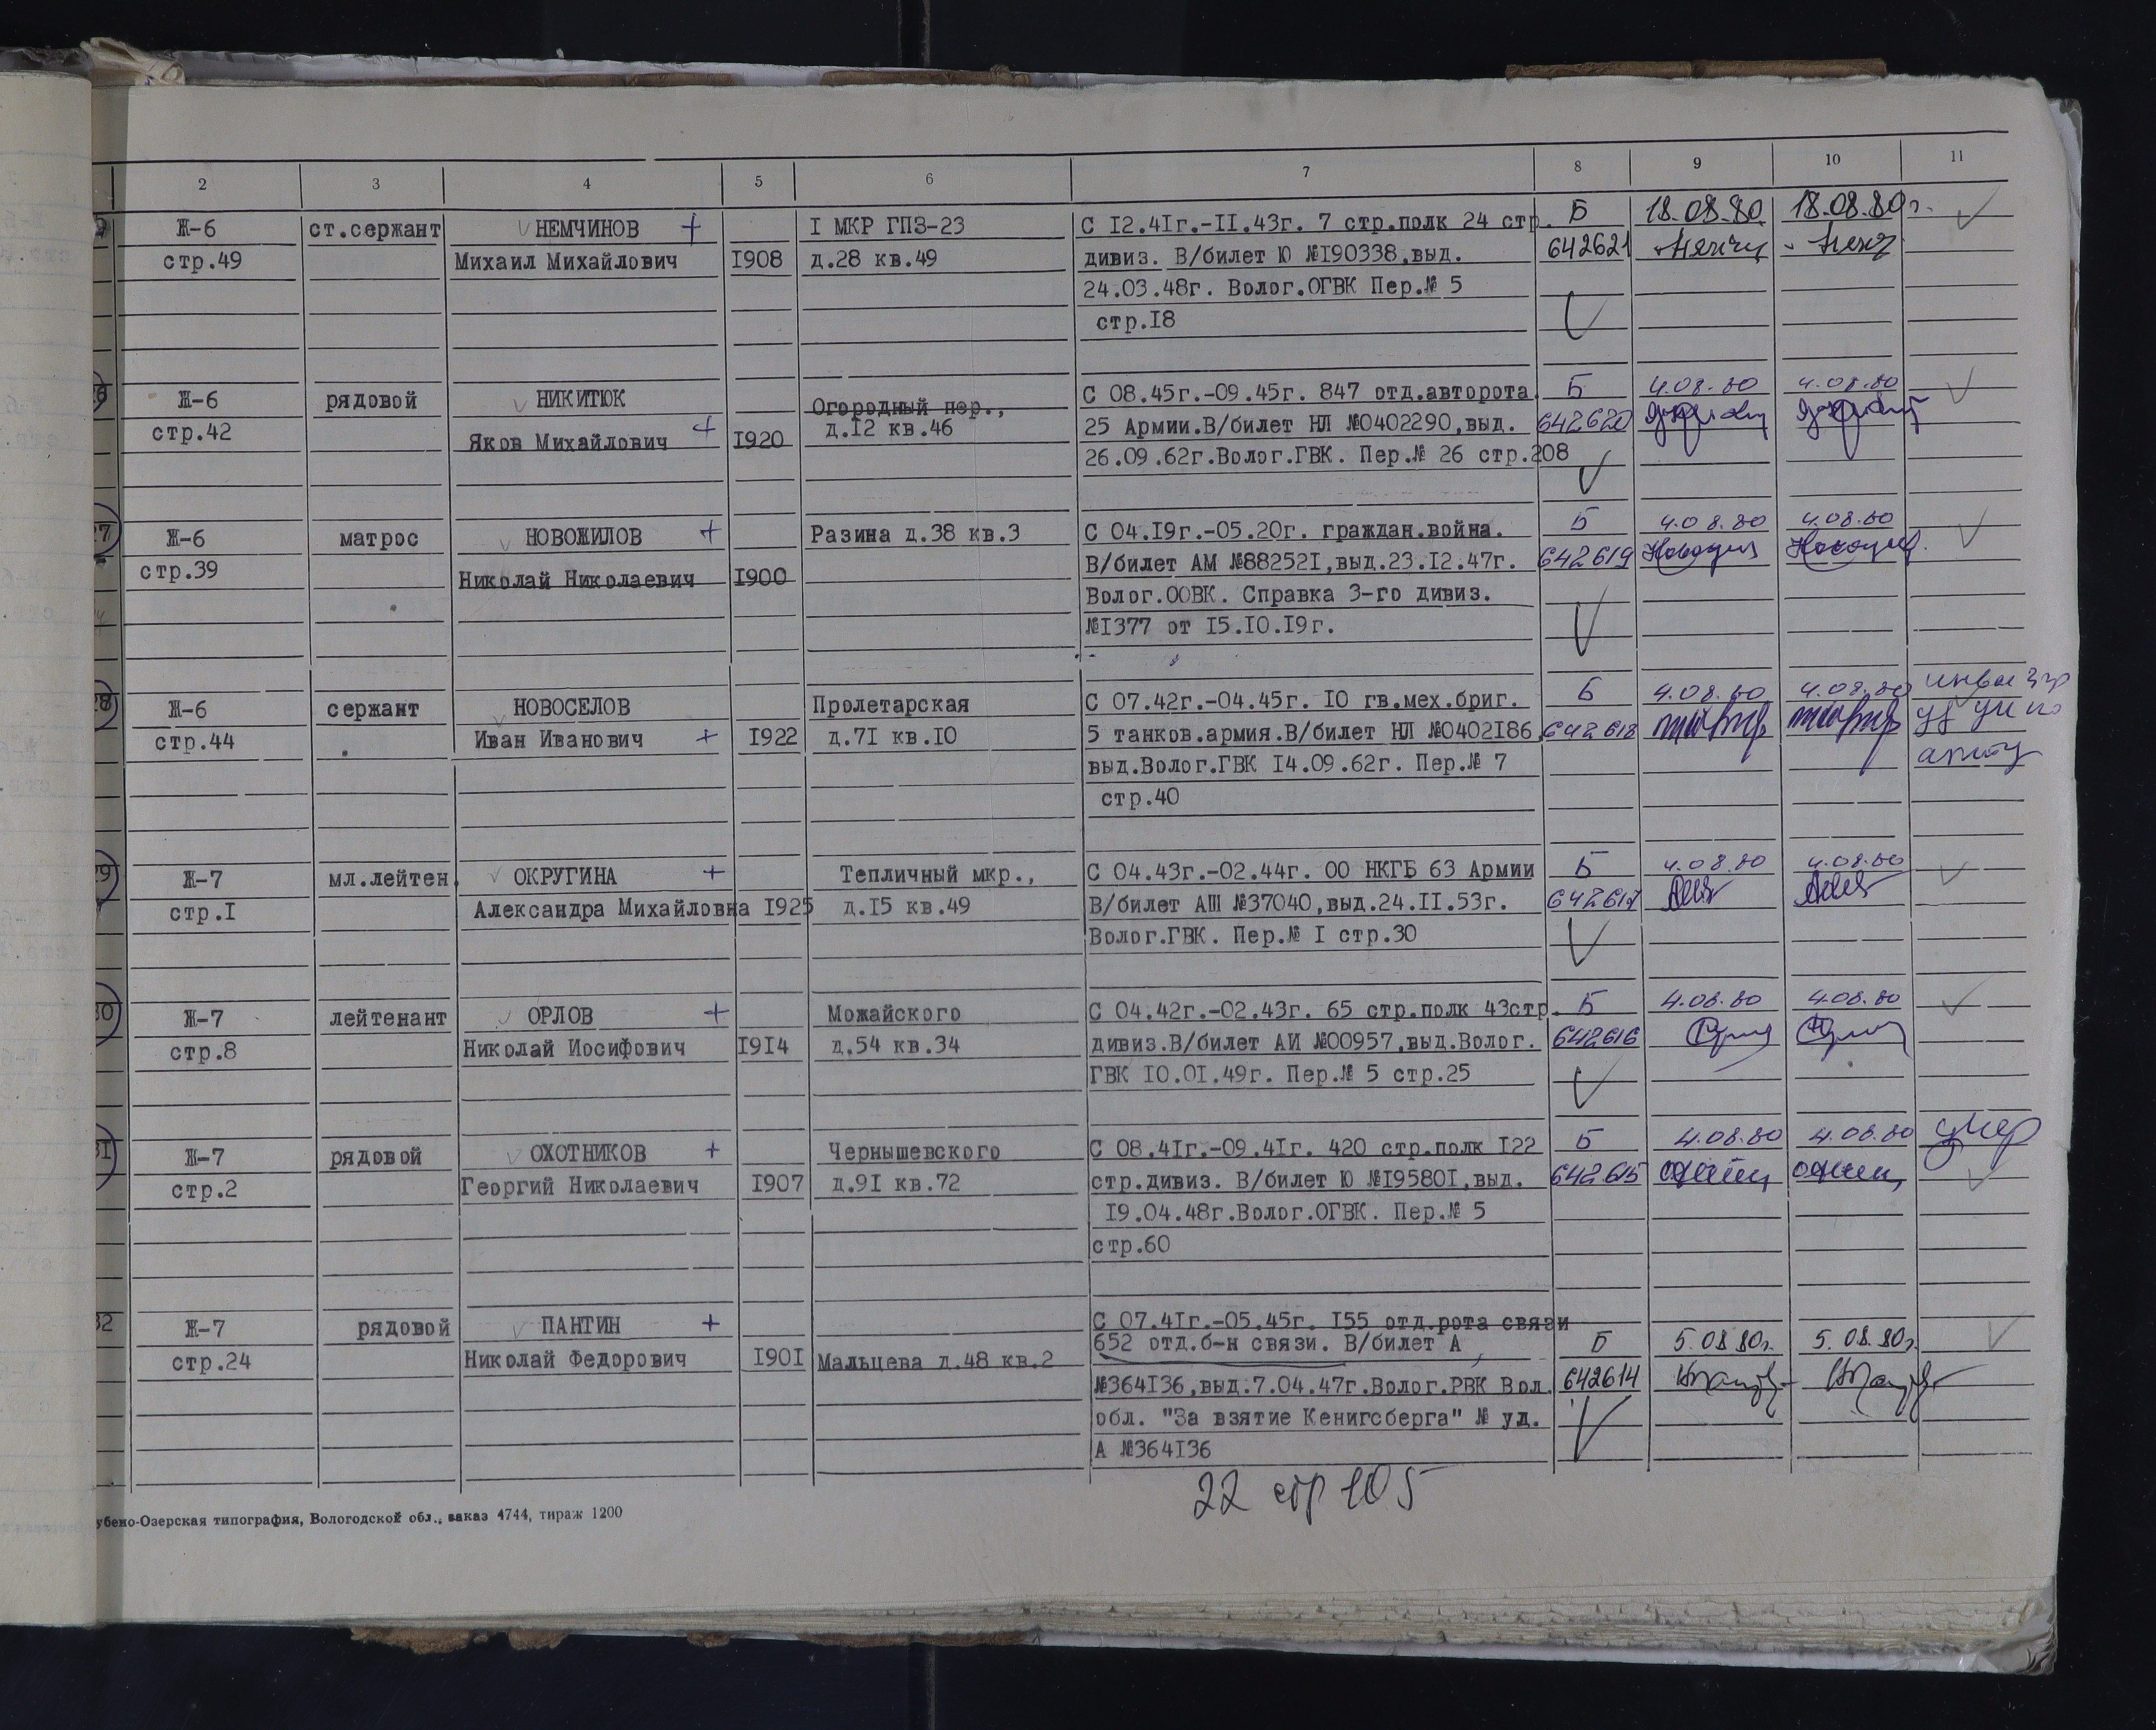 2 3 4 5 6 7 8 9 10 11
Ж-6 ст.сержант НЕМЧИНОВ + I МКР ГПЗ-23 С I2.4Iг.-II.43г. 7 стр.полк 24 стр. Б 18.08.80 18.08.80г.
стр.49 Михаил Михайлович I908 д.28 кв.49 дивиз. В/билет Ю №I90338,выд. 642621
24.03.48г. Волог.ОГВК Пер.№ 5
стр.I8
Ж-6 рядовой НИКИТЮК Огородный пер., С 08.45г.-09.45г. 847 отд.авторота Б 4.08.80 4.08.80
стр.42 Яков Михайлович + I920 д.I2 кв.46 25 Армии.В/билет НЛ №0402290,выд. 642620
26.09.62г.Волог.ГВК. Пер.№ 26 стр.208
27 Ж-6 матрос НОВОЖИЛОВ + Разина д.38 кв.3 С 04.I9г.-05.20г. граждан.война. Б 4.08.80 4.08.80
стр.39 Николай Николаевич I900 В/билет АМ №88252I,выд.23.I2.47г. 642619
Волог.ООВК. Справка 3-го дивиз.
№I377 от I5.I0.I9г.
28 Ж-6 сержант НОВОСЕЛОВ Пролетарская С 07.42г.-04.45г. I0 гв.мех.бриг. Б 4.08.80 4.08.80
стр.44 Иван Иванович + I922 д.7I кв.I0 5 танков.армия.В/билет НЛ №0402I86 642618
выд.Волог.ГВК I4.09.62г. Пер.№ 7
стр.40
29 Ж-7 мл.лейтен. ОКРУГИНА + Тепличный мкр., С 04.43г.-02.44г. 00 НКГБ 63 Армии Б 4.08.80 4.08.80
стр.I Александра Михайловна I925 д.I5 кв.49 В/билет АШ №37040,выд.24.II.53г. 642617
Волог.ГВК. Пер.№ I стр.30
30 Ж-7 лейтенант ОРЛОВ + Можайского С 04.42г.-02.43г. 65 стр.полк 43стр. Б 4.08.80 4.08.80
стр.8 Николай Иосифович I9I4 д.54 кв.34 дивиз.В/билет АИ №00957,выд.Волог. 642616
ГВК I0.0I.49г. Пер.№ 5 стр.25
31 Ж-7 рядовой ОХОТНИКОВ + Чернышевского С 08.4Iг.-09.4Iг. 420 стр.полк I22 Б 4.08.80 4.08.80 умер
стр.2 Георгий Николаевич I907 д.9I кв.72 стр.дивиз. В/билет Ю №I9580I,выд. 642615
I9.04.48г.Волог.ОГВК. Пер.№ 5
стр.60
32 Ж-7 рядовой ПАНТИН + С 07.4Iг.-05.45г. I55 отд.рота связи
652 отд.б-н связи. В/билет А Б 5.08.80г. 5.08.80г.
стр.24 Николай Федорович I90I Мальцева д.48 кв.2
№364I36,выд.7.04.47г.Волог.РВК Вол. 642614
обл. "За взятие Кенигсберга" № уд.
А №364I36
22 стр 105
убено-Озерская типография, Вологодской обл., заказ 4744, тираж 1200